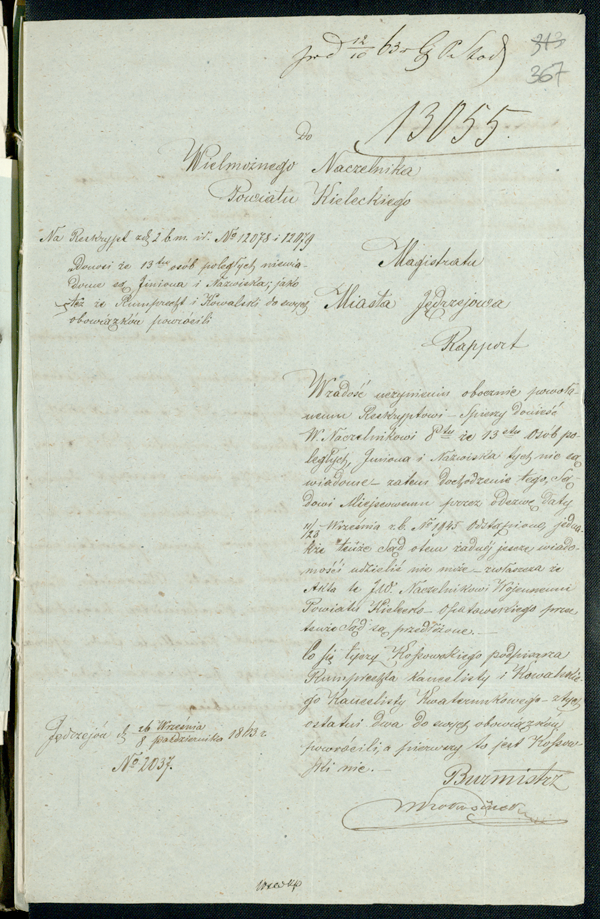 313
367
13055.
Do
Wielmożnego Naczelnika
Powiatu Kieleckiego
Na Reskrypt z d. 2 b. m. i r. No 12078 i 12979
Donosi że 13tu osób poległych niewia-
dome są Imiona i Nazwiska; jako
też że Rumprecht i Kowalski do swych
obowiązków powrócili
Magistratu
Miasta Jędrzejowa
Rapport
W zadość uczynieniu obocznie powoła-
nemu Reskryptowi – spieszy donieść
W. Naczelnikowi Ptu że 13stu Osób po-
ległych, Imiona i Nazwiska tych nie są
wiadome – zatem dochodzenie tego, Są-
dowi Miejscowemu przez odezwę daty
11/23 Września r. b. No 1845 Odstąpiono, jedna-
kże tenże Sąd o tem żadnej jeszcze wiado-
mości udzielić nie może – zwłaszcza że
Akta te JW. Naczelnikowi Wojennemu
Powiatu Kielecko – Opatowskiego przez
tenże Sąd są przedłożone. –
Co się tyczy Kossowskiego podpisarza
Rumprechta kancelisty i Kowalskie-
go Kancelisty Kwaterunkowego – z tych
ostatni dwa do swych obowiązków
powrócili, a pierwszy to jest Kossow-
ski nie. –
Jędrzejów d. 26 Września / 8 Października 1863 r.
No 2037.
Burmistrz